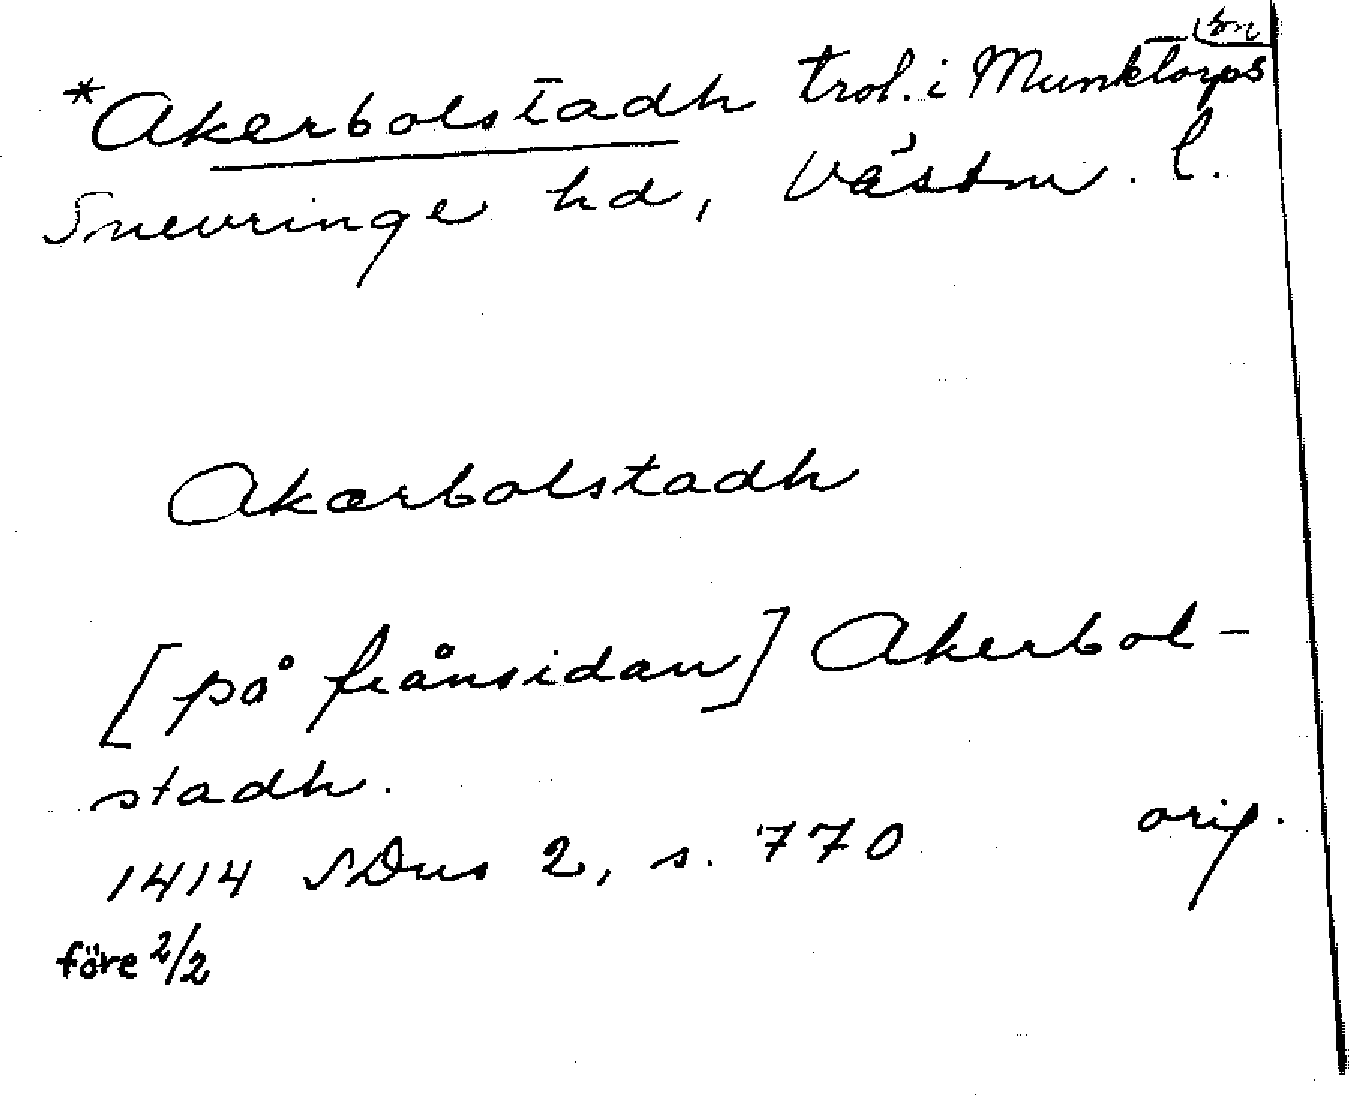 *Akerbolstadh trol. i Munktorps sn
Snevringe hd, Västm. l.
Akærbolstadh
[på frånsidan] Akerbol-
stadh.
1414 SDns 2, s. 770 orig.
före 2/2